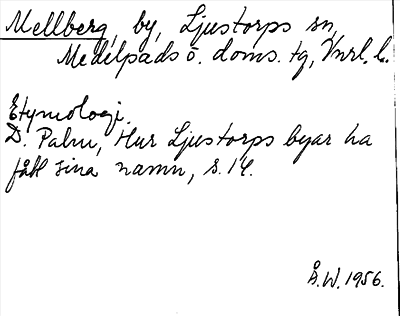 Mellberg, by, Ljustorps sn,
Medelpads ö. doms. tg, Vnrl. l.
Etymologi.
D. Palm, Hur Ljustorps byar ha
fått sina namn, s. 14.
Å.W. 1956.